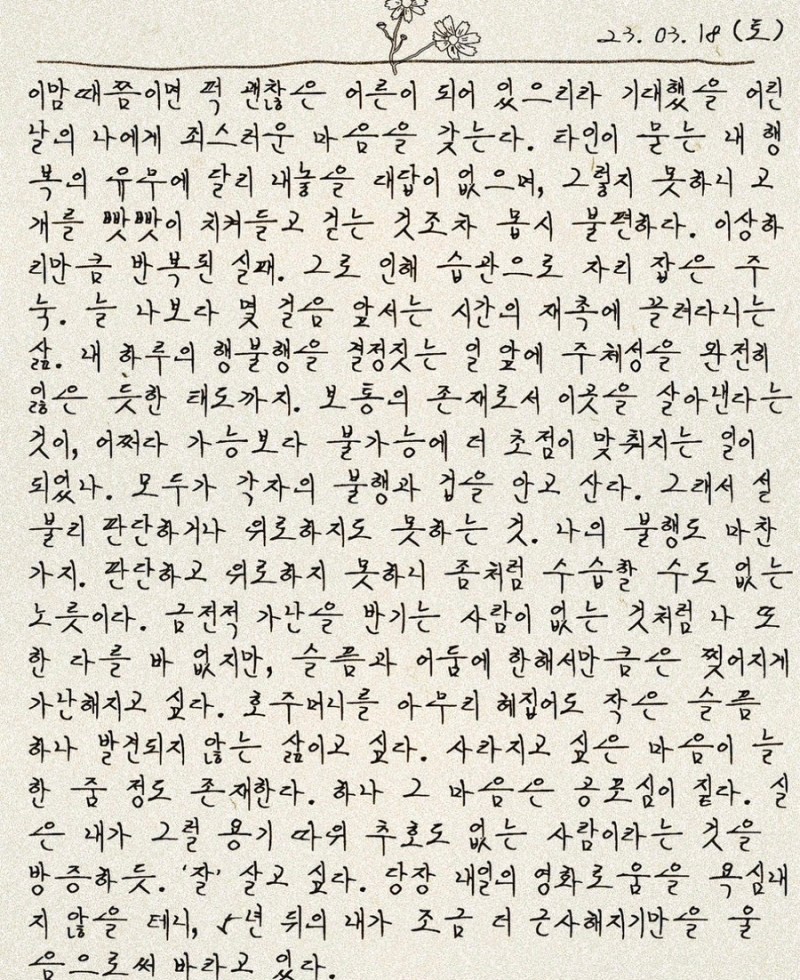 23. 03. 18 (토)
이맘때쯤이면 퍽 괜찮은 어른이 되어 있으리라 기대했을 어린
날의 나에게 죄스러운 마음을 갖는다. 타인이 묻는 내 행
복의 유무에 달리 내놓을 대답이 없으며, 그렇지 못하니 고
개를 빳빳이 치켜들고 걷는 것조차 몹시 불편하다. 이상하
리만큼 반복된 실패. 그로 인해 습관으로 자리 잡은 주
눅. 늘 나보다 몇 걸음 앞서는 시간의 재촉에 끌려다니는
삶. 내 하루의 행불행을 결정짓는 일 앞에 주체성을 완전히
잃은 듯한 태도까지. 보통의 존재로서 이곳을 살아낸다는
것이, 어쩌다 가능보다 불가능에 더 초점이 맞춰지는 일이
되었나. 모두가 각자의 불행과 겁을 안고 산다. 그래서 섣
불리 판단하거나 위로하지도 못하는 것. 나의 불행도 마찬
가지. 판단하고 위로하지 못하니 좀처럼 수습할 수도 없는
노릇이다. 금전적 가난을 반기는 사람이 없는 것처럼 나 또
한 다를 바 없지만, 슬픔과 어둠에 한해서만큼은 찢어지게
가난해지고 싶다. 호주머니를 아무리 헤집어도 작은 슬픔
하나 발견되지 않는 삶이고 싶다. 사라지고 싶은 마음이 늘
한 줌 정도 존재한다. 하나 그 마음은 공포심이 짙다. 실
은 내가 그럴 용기 따위 추호도 없는 사람이라는 것을
방증하듯. '잘' 살고 싶다. 당장 내일의 영화로움을 욕심내
지 않을 테니, 5년 뒤의 내가 조금 더 근사해지기만을 울
음으로써 바라고 있다.